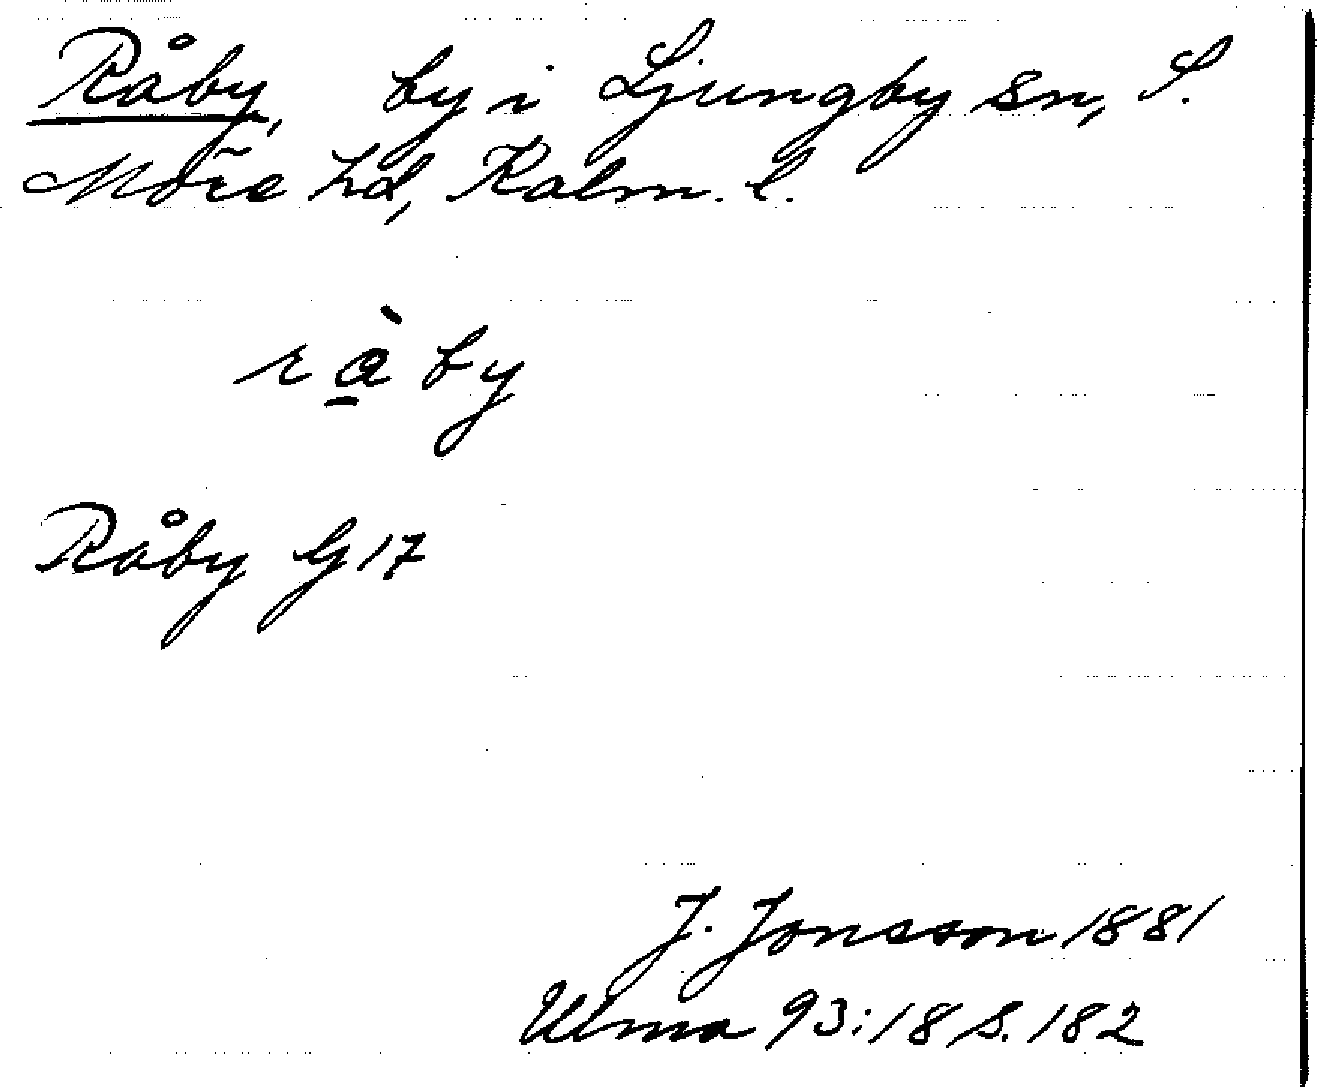 Råby, by i Ljungby sn, S.
Möre hd, Kalm. l.
rà̱by
Råby G17
J. Jonsson 1881
Ulma 93:18 s. 182